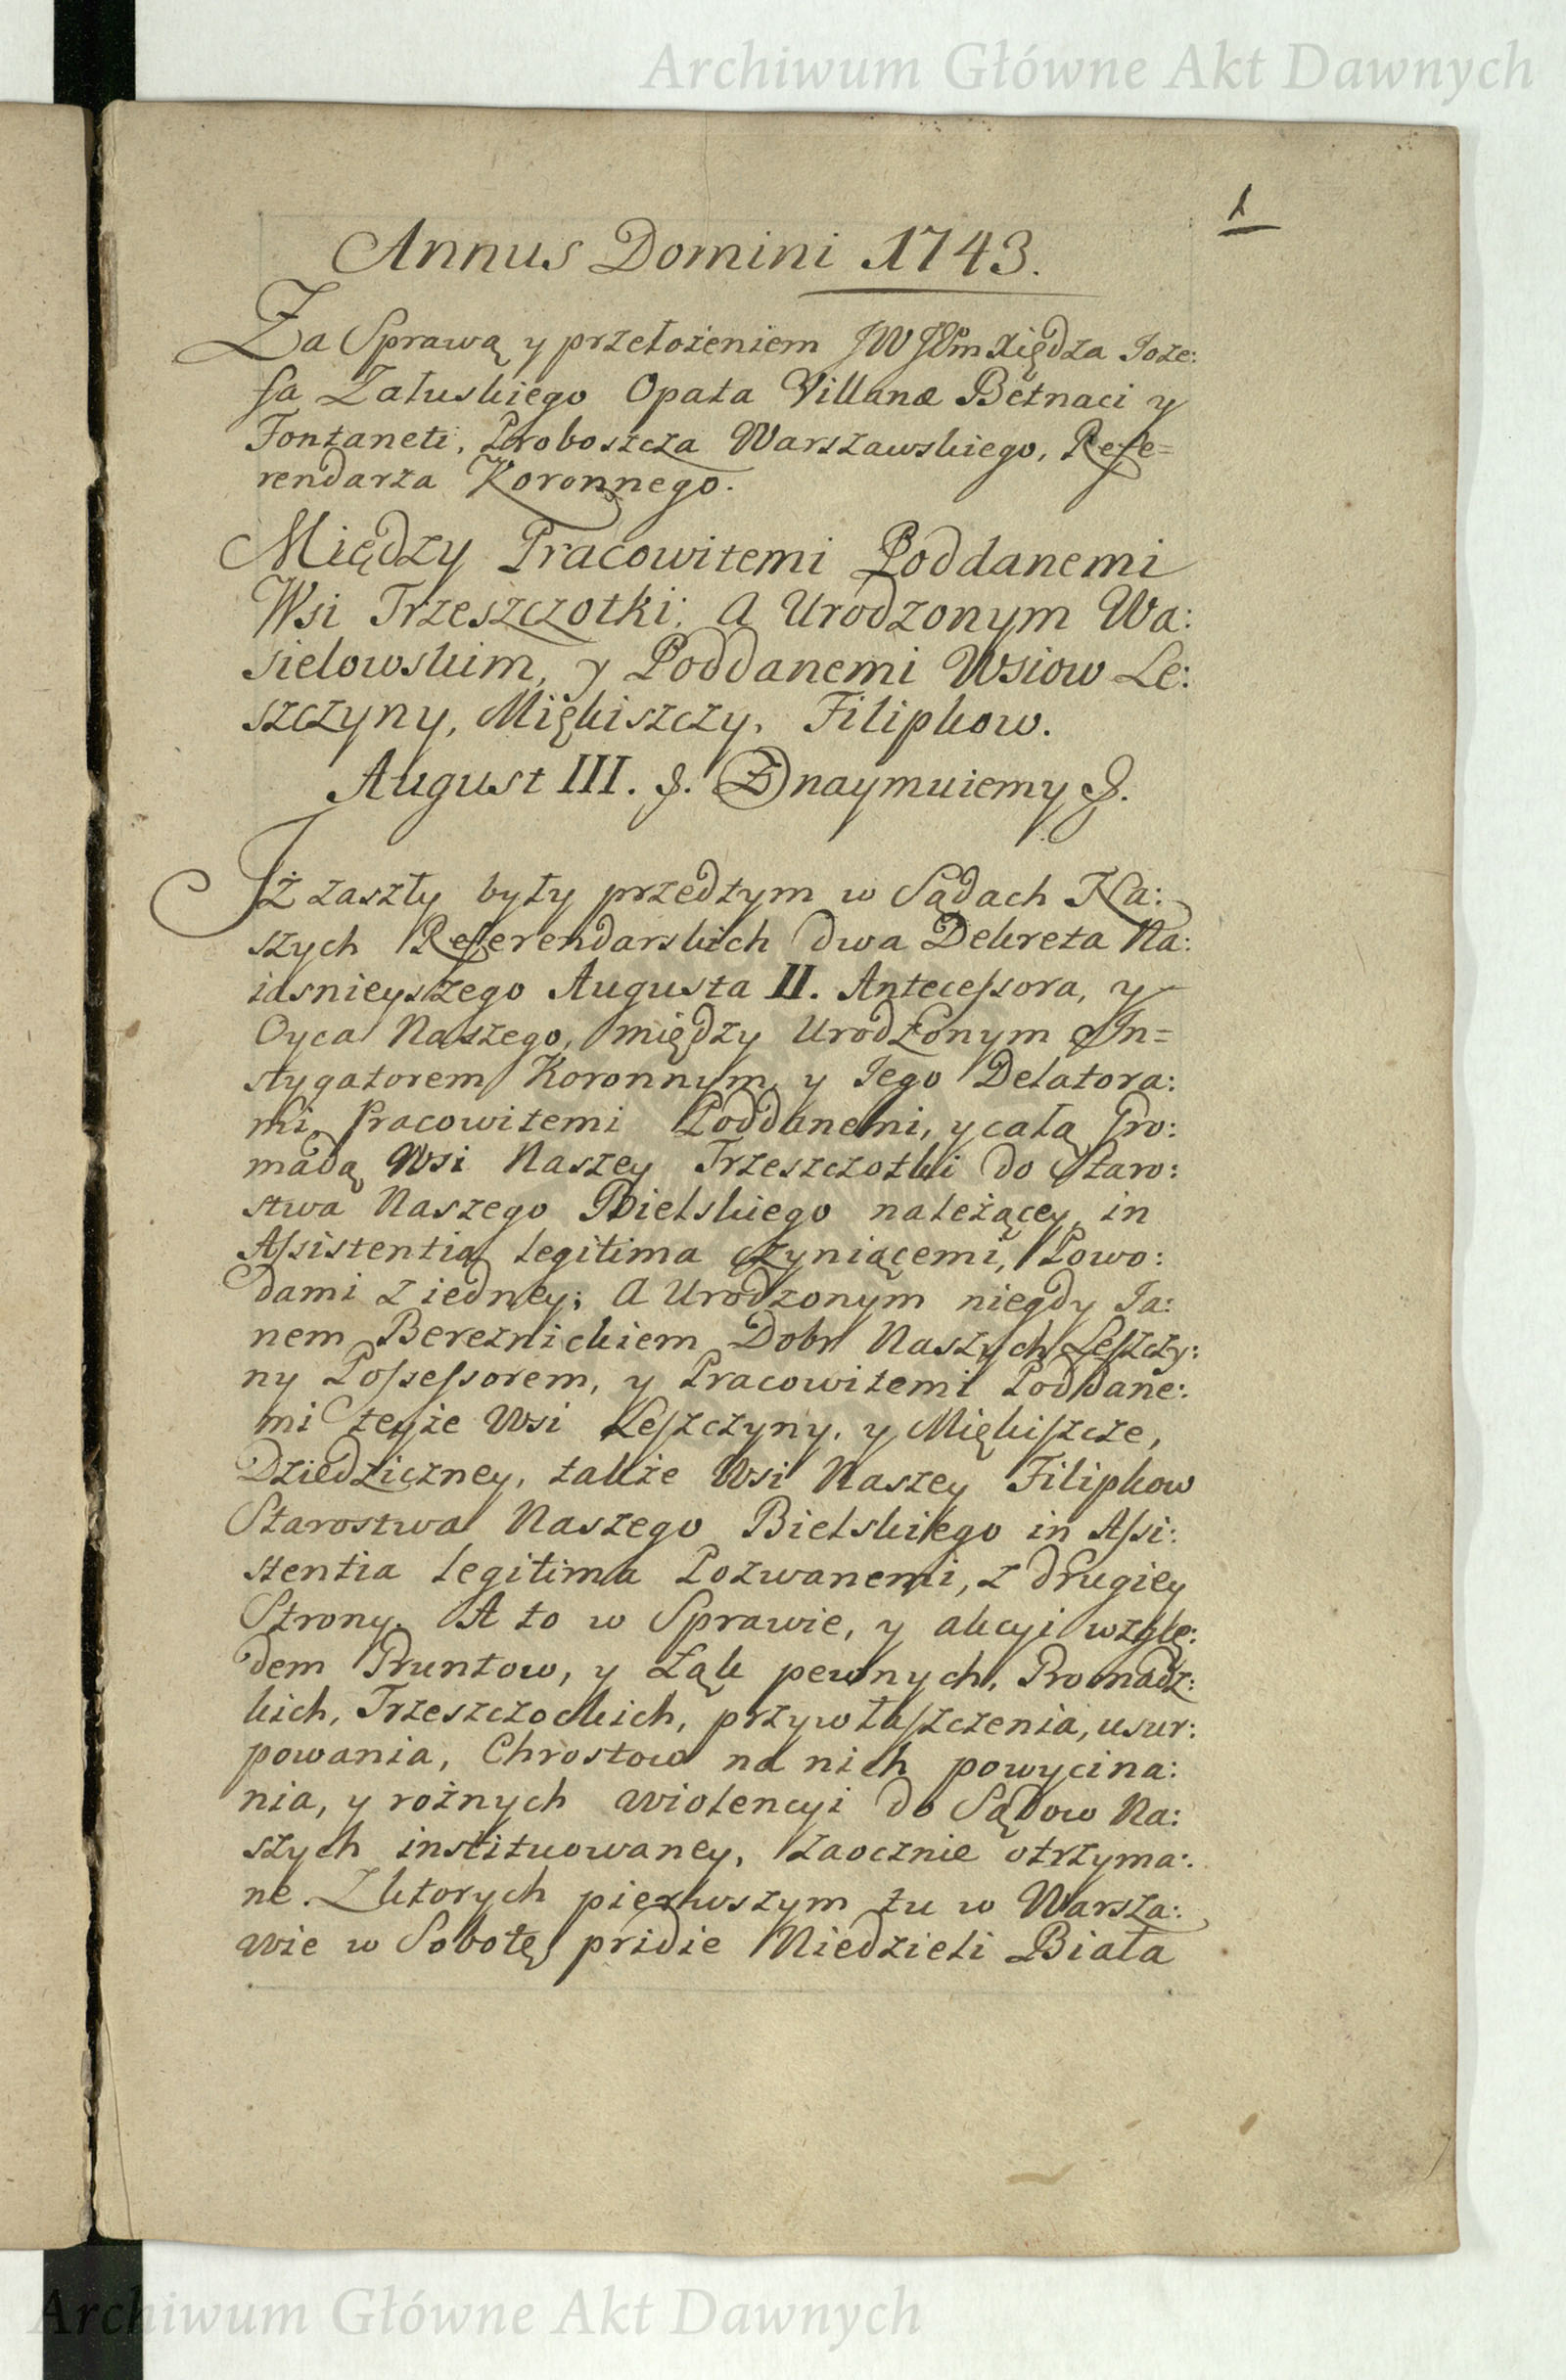 Archiwum Główne Akt Dawnych
1
Annus Domini 1743.
Za Sprawą y przełożeniem JW JEm Xiędza Joze:
fa Załuskiego Opata Villanæ Betnaci y
Fontaneti, Proboszcza Warszawskiego, Refe=
rendarza Koronnego.
Między Pracowitemi Poddanemi
Wsi Trzeszczotki: A Urodzonym Wa:
sielowskim, y Poddanemi Wsiow Le:
szczyny, Miękiszczy, Filipkow.
August III. &. Oznaymuiemy &.
Iż zaszły były przedtym w Sądach Na:
szych Referendarskich dwa Dekreta Na:
iasnieyszego Augusta II. Antecessora, y
Oyca Naszego, między Urodzonym In=
stygatorem Koronnym, y Jego Delatora:
mi Pracowitemi Poddanemi, y całą Gro:
madą Wsi Naszey Trzeszczotki do Staro:
stwa Naszego Bielskiego należącey, in
Assistentia legitima czyniącemi, Powo:
dami z iedney; A Urodzonym niegdy Ja:
nem Bereznickiem Dobr Naszych Leszczy:
ny Possessorem, y Pracowitemi Poddane:
mi teyże Wsi Leszczyny, y Miękiszcze,
Dziedziczney, także Wsi Naszey Filipkow
Starostwa Naszego Bielskiego in Assi:
stentia legitima Pozwanemi, z drugiey
Strony. A to w Sprawie, y akcyi wzglę:
dem Gruntow, y Łąk pewnych, Gromadz:
kich, Trzeszczockich, przywłaszczenia, usur:
powania, Chrostow na nich powycina:
nia, y rożnych wiolencyi do Sądow Na:
szych instituowaney, zaocznie otrzyma:
ne. Z ktorych pierwszym tu w Warsza:
wie w Sobotę pridie Niedzieli Biała
Archiwum Główne Akt Dawnych